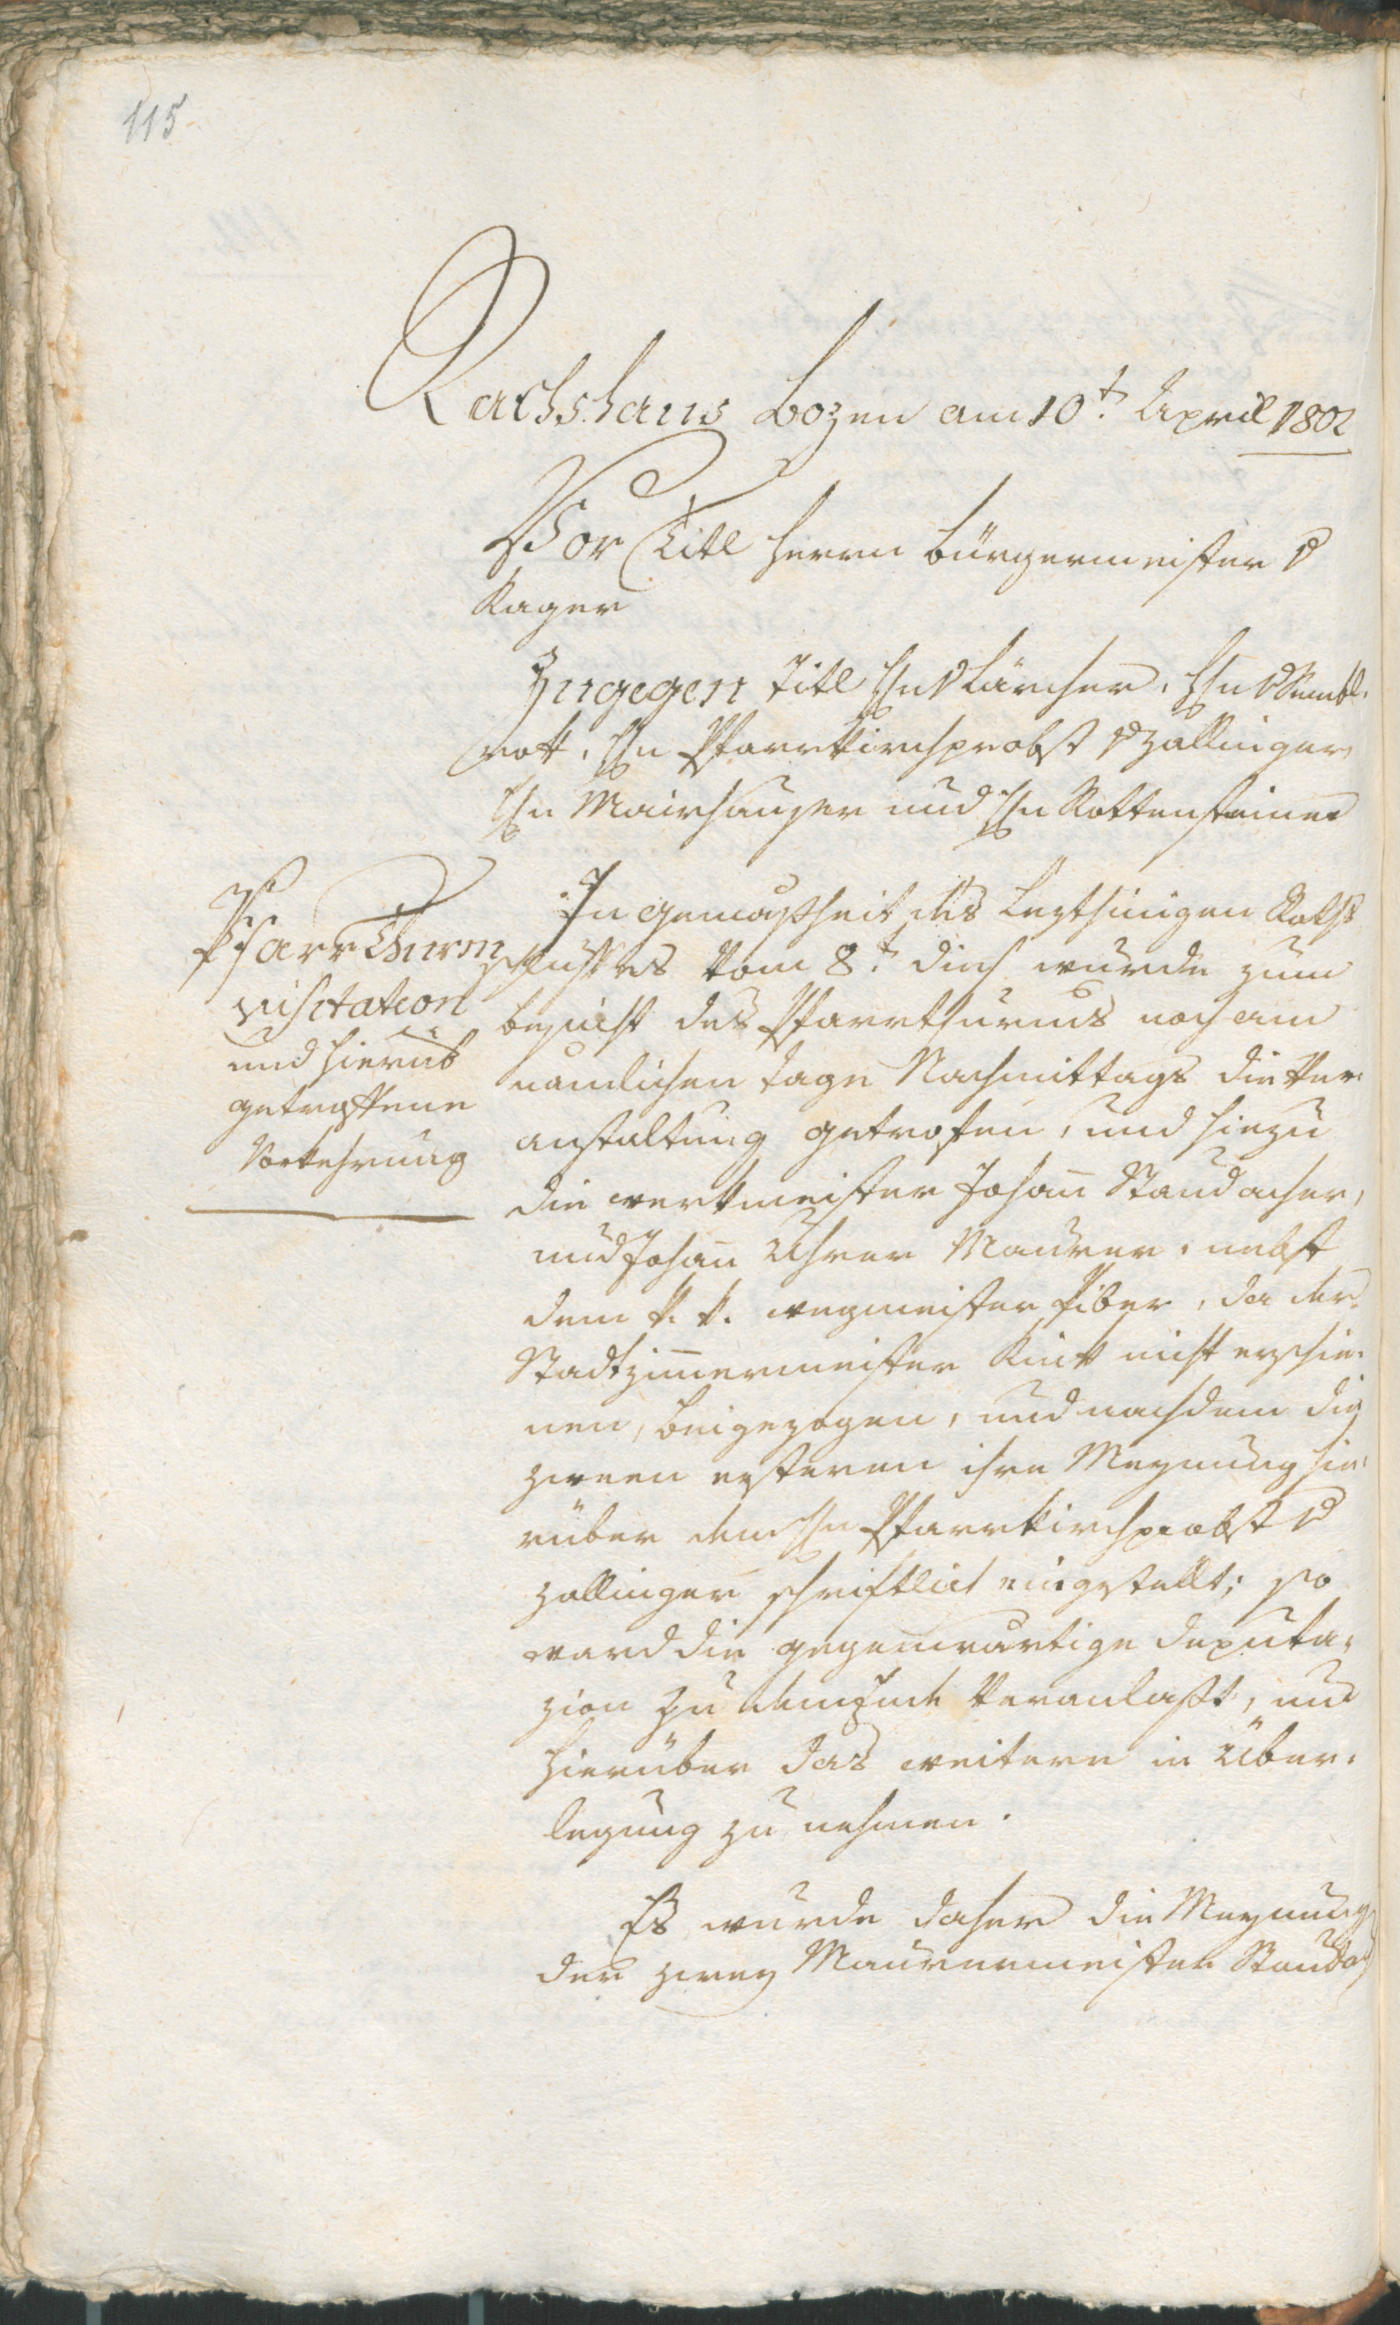 115
Rathshaus Bozen am 10t. April 1802
Vor Titl Herrn Bürgermeister v
Kager
Zugegen Titl Hn v Lärcher, Hn v
rott, Hn Pfarrkirchprobst v Zallinger
Hn Mairhauser und Hn Rottensteiner
Pfarr Thurm
visitation
und hierüb
getroffene
Vorkehrung
In gemaßheit des Lezthinigen Raths
schlusses vom 8t. dies wurde zum
besicht des Pfarrthurms noch am
namlichen tage Nachmittags die Ver
anstaltung getrofen, und hiezu
die werkmeister Johan̄ Staudacher,
und Johan̄ Uhrer Maurer, nebst
dem k. k. wegmeister Piber, da der
Stadtzim̄ermeister Kink nicht erschie-
nen, beigezogen, und nachdem die
zween ersteren ihre Meynung hie-
rüber dem Hn Pfarrkirchprobst v
Zallinger schriftlich eingstellt; so
ward die gegenwärtige Deputa-
zion zu dem Ende veranlaßt, um
hierüber das weitere in Über-
legung zu nehmen.
Es wurde daher die Meynung
der zwey Maurermeister Staudach